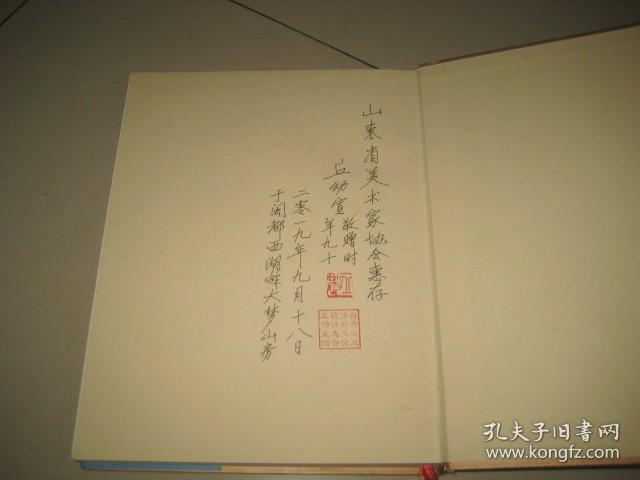 山東省美术家协会惠存
丘幼宣敬赠时
年九十
二零一九年九月十八日
于闽都西湖畔大梦山房
孔夫子旧书网
www.kongfz.com